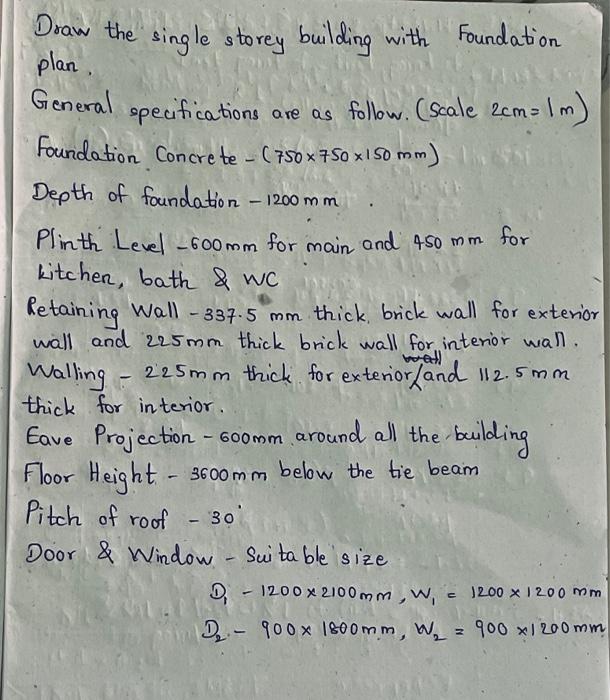 Draw the single storey building with Foundation
plan.
General specifications are as follow. (Scale 2cm = 1m)
Foundation Concrete - (750 × 750 × 150 mm)
Depth of foundation - 1200 mm.
Plinth Level - 600 mm for main and 450 mm for
kitchen, bath & WC
Retaining Wall - 337.5 mm thick brick wall for exterior
wall and 225mm thick brick wall for interior wall.
Walling - 225mm thick for exterior/wall and 112.5mm
thick for interior.
Eave Projection - 600mm around all the building
Floor Height - 3600mm below the tie beam
Pitch of roof - 30°
Door & Window - Suitable size
D₁ - 1200 × 2100mm, W₁ = 1200 × 1200 mm
D₂ - 900 × 1800mm, W₂ = 900 × 1200mm